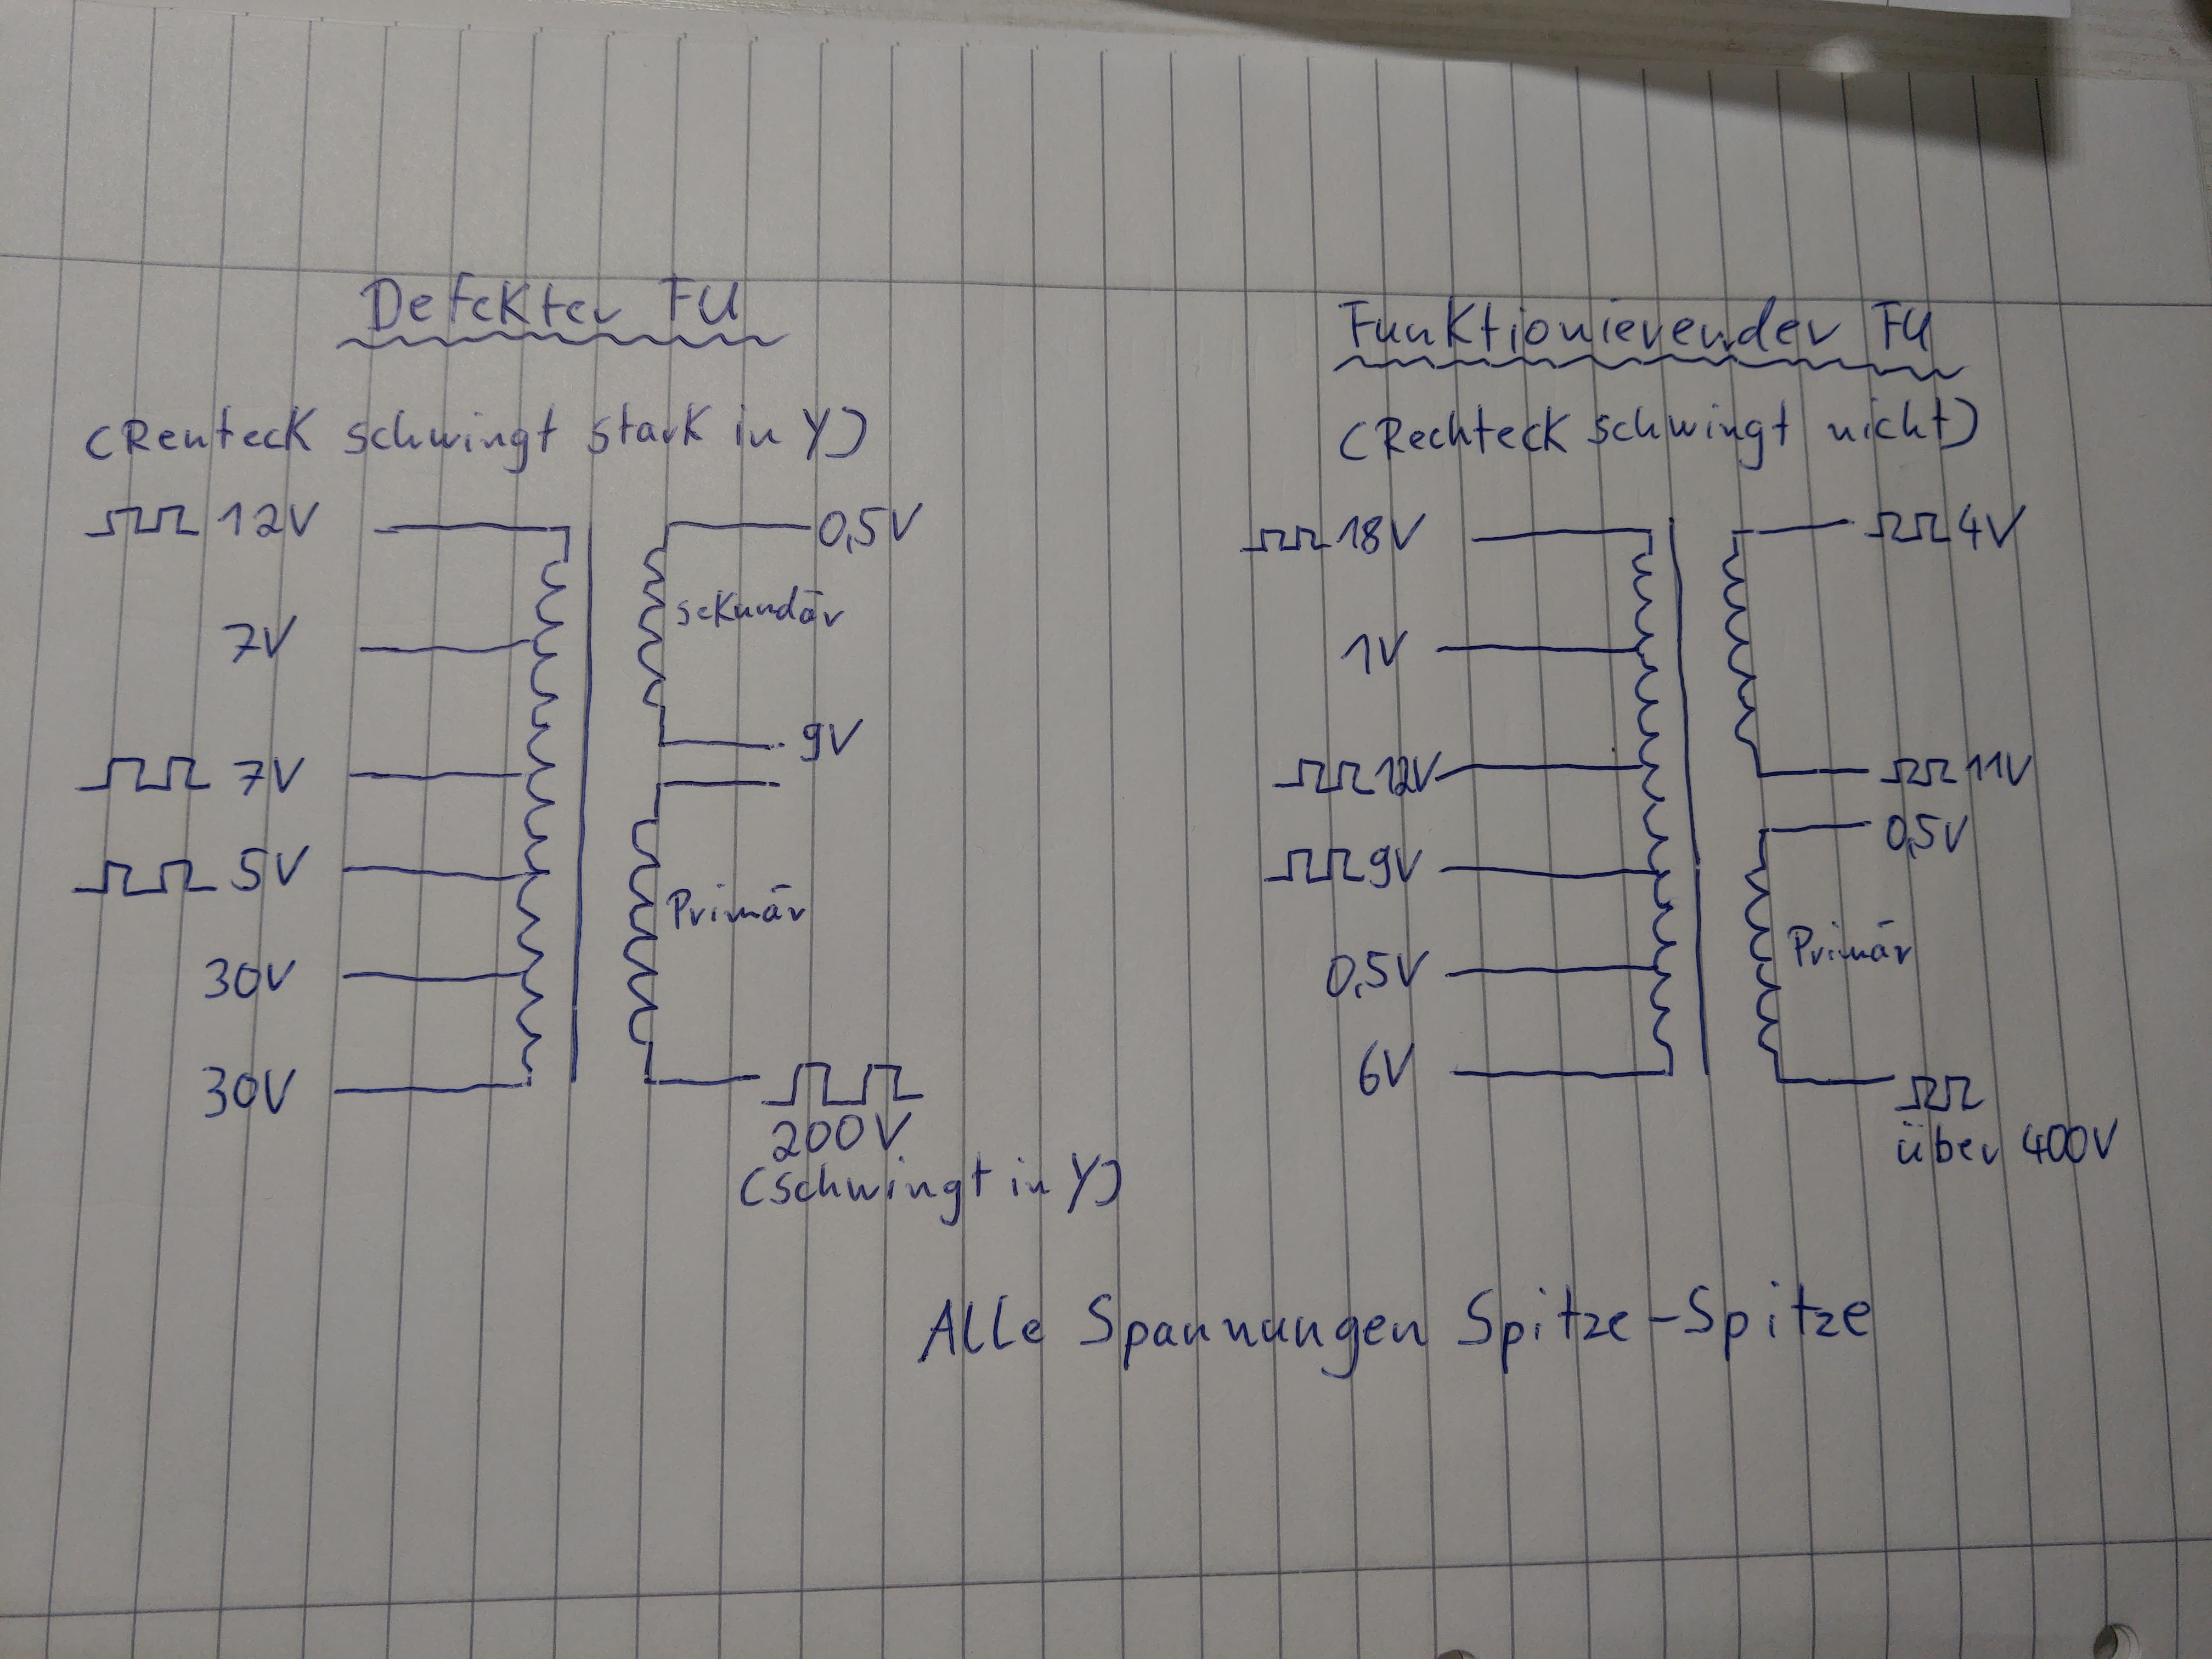 Defekter FU
(Renteck schwingt stark in Y)
12V
7V
7V
5V
30V
30V
0,5V
sekundär
9V
Primär
200V
(schwingt in Y)
Funktionierender FU
(Rechteck schwingt nicht)
18V
1V
12V
9V
0,5V
6V
4V
11V
0,5V
Primär
über 400V
Alle Spannungen Spitze-Spitze